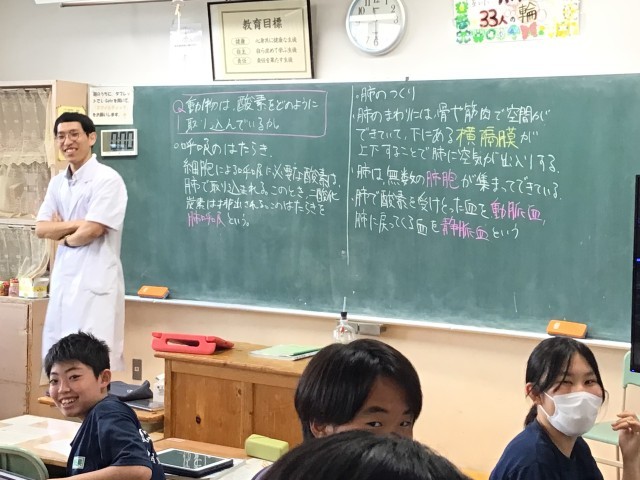 教育目標
33人の輪
Q 動物は、酸素をどのように
取り込んでいるか。
・呼吸のはたらき
細胞による呼吸に必要な酸素は、
肺で取り込まれる。このとき、二酸化
炭素は排出される。このはたらきを
肺呼吸という。
・肺のつくり
・肺のまわりには、骨や筋肉で空間が
できていて、下にある横隔膜が
上下することで肺に空気が出入りする。
・肺は、無数の肺胞が集まってできている。
・肺で酸素を受けとった血を動脈血、
肺に戻ってくる血を静脈血という